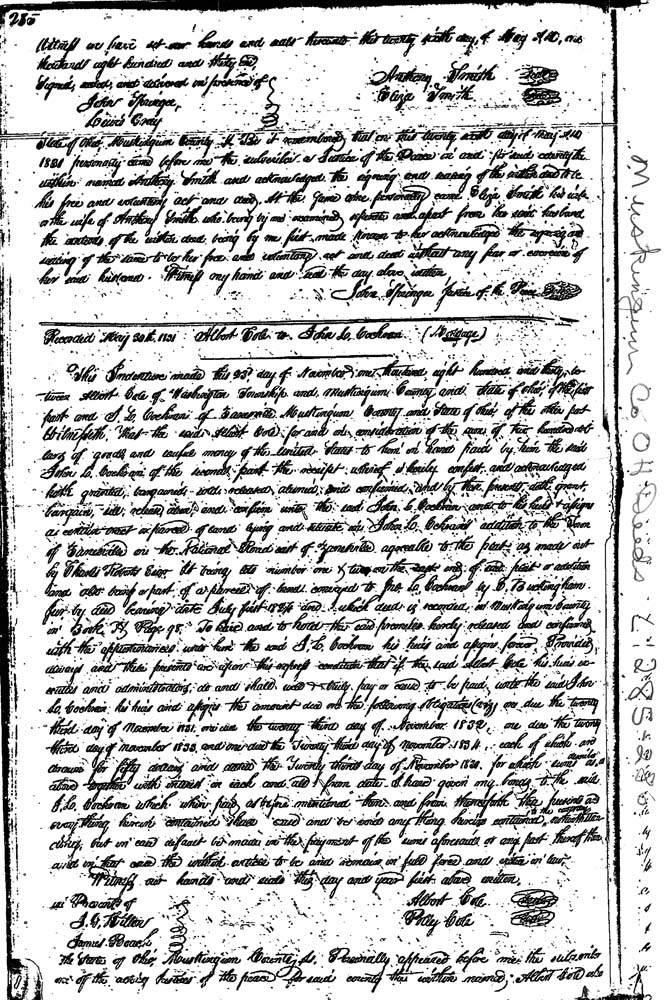 285
Witness we have set our hands and seals hereunto this twenty sixth day of May A.D. one
thousand eight hundred and thirty one
Signed, sealed, and delivered in presence of
Anthony Smith
John Springer,
Eliza Smith
Lewis Gray
State of Ohio, Muskingum County Be it remembered, that on this twenty sixth day of May A.D
1831 personally came before me the subscriber a Justice of the Peace in and for said county the
within named Anthony Smith and acknowledged the signing and sealing of the within deed to be
his free and voluntary act and deed, At the same time personally came Eliza Smith his wife
the wife of Anthony Smith who being by me examined, separate and apart from her said husband
the contents of the within deed being by me first made known to her acknowledged the signing and
sealing of the same to be her free and voluntary act and deed without any fear or coercion of
her said husband. Witness my hand and seal the day above written
John Springer Justice of the Peace
Recorded May 30th 1831 Albert Cole to John L. Cochran (Mortgage)
This Indenture made this 23d day of November one thousand eight hundred and thirty, be-
tween Albert Cole of Washington Township and Muskingum County and State of Ohio, of the first
part and J. L. Cochran of Zanesville, Muskingum County and State of Ohio, of the other part
Witnesseth, That the said Albert Cole for and in consideration of the sum of two hundred dol-
lars of good and lawful money of the United States to him in hand paid by him the said
John L. Cochran of the second part the receipt whereof is hereby confest and acknowledged
hath granted, bargained sold released, aliened, and confirmed and by these presents doth grant,
bargain, sell, release alien, and confirm unto the said John L. Cochran and to his heirs & assigns
a certain tract or parcel of land lying and situate in John L. Cochran's addition to the Town
of Zanesville on the National Road east of Zanesville agreeable to the plat as made out
by Charles Roberts Esqr. It being lots number one & two on the east end of said plat or addition
and also being a part of a parcel of land conveyed to Jno. L. Cochran by E. Buckingham
by deed bearing date July first 1824 and which deed is recorded in Muskingum County
in Book H, Page 98. To have and to hold the said premises hereby released and confirmed
with the appurtenances unto him the said J. L. Cochran his heirs and assigns forever Provided,
always and these presents are upon this express condition that if the said Albert Cole his heirs ex-
ecutors and administrators, do and shall well & truly pay or cause to be paid, unto the said John
L. Cochran his heirs and assigns the amount due on the following obligations (viz) one due the twenty
third day of November 1831, one due the twenty third day of November 1832, one due the twenty
third day of November 1833, and one due the Twenty third day of November 1834. each of which are
drawn for fifty dollars and dated the Twenty third day of November 1830. for which sums as
above together with interest on each and all from date I have given my bonds to the said
J. L. Cochran which when paid as before mentioned then and from thenceforth these presents and
everything herein contained shall cease and be void any thing herein contained, notwithstan-
ding, but in case default be made in the payment of the sums aforesaid or any part thereof then
and in that case the within article to be and remain in full force and virtue in law.
Witness our hands and seals this day and year first above written.
in Presence of
Albert Cole
Polley Cole
James
The State of Ohio, Muskingum County, ss. Personally appeared before me the subscriber
one of the acting Justices of the peace for said county the within named, Albert Cole and
Muskingum Co OH Deeds L: 285-286